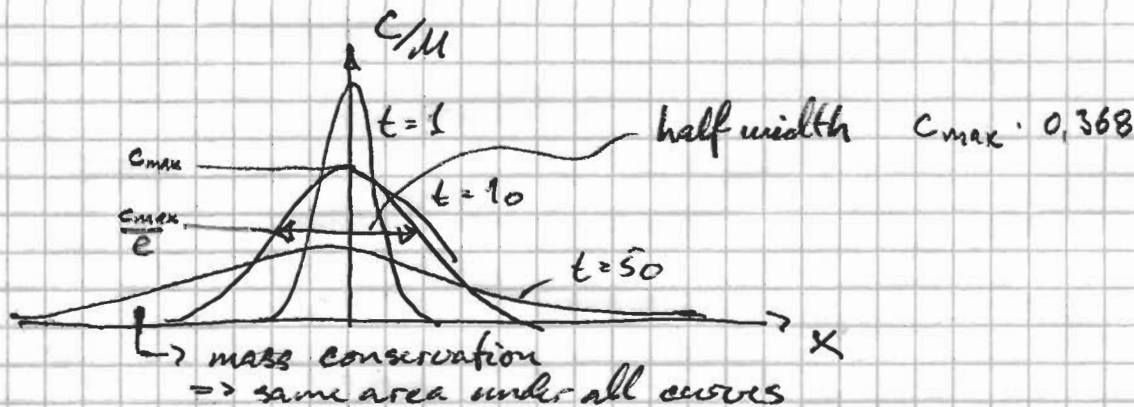 C/M
t = 1
half width C max · 0,368
C max
t = 10
C max
e
t = 50
x
→ mass conservation
=> same area under all curves